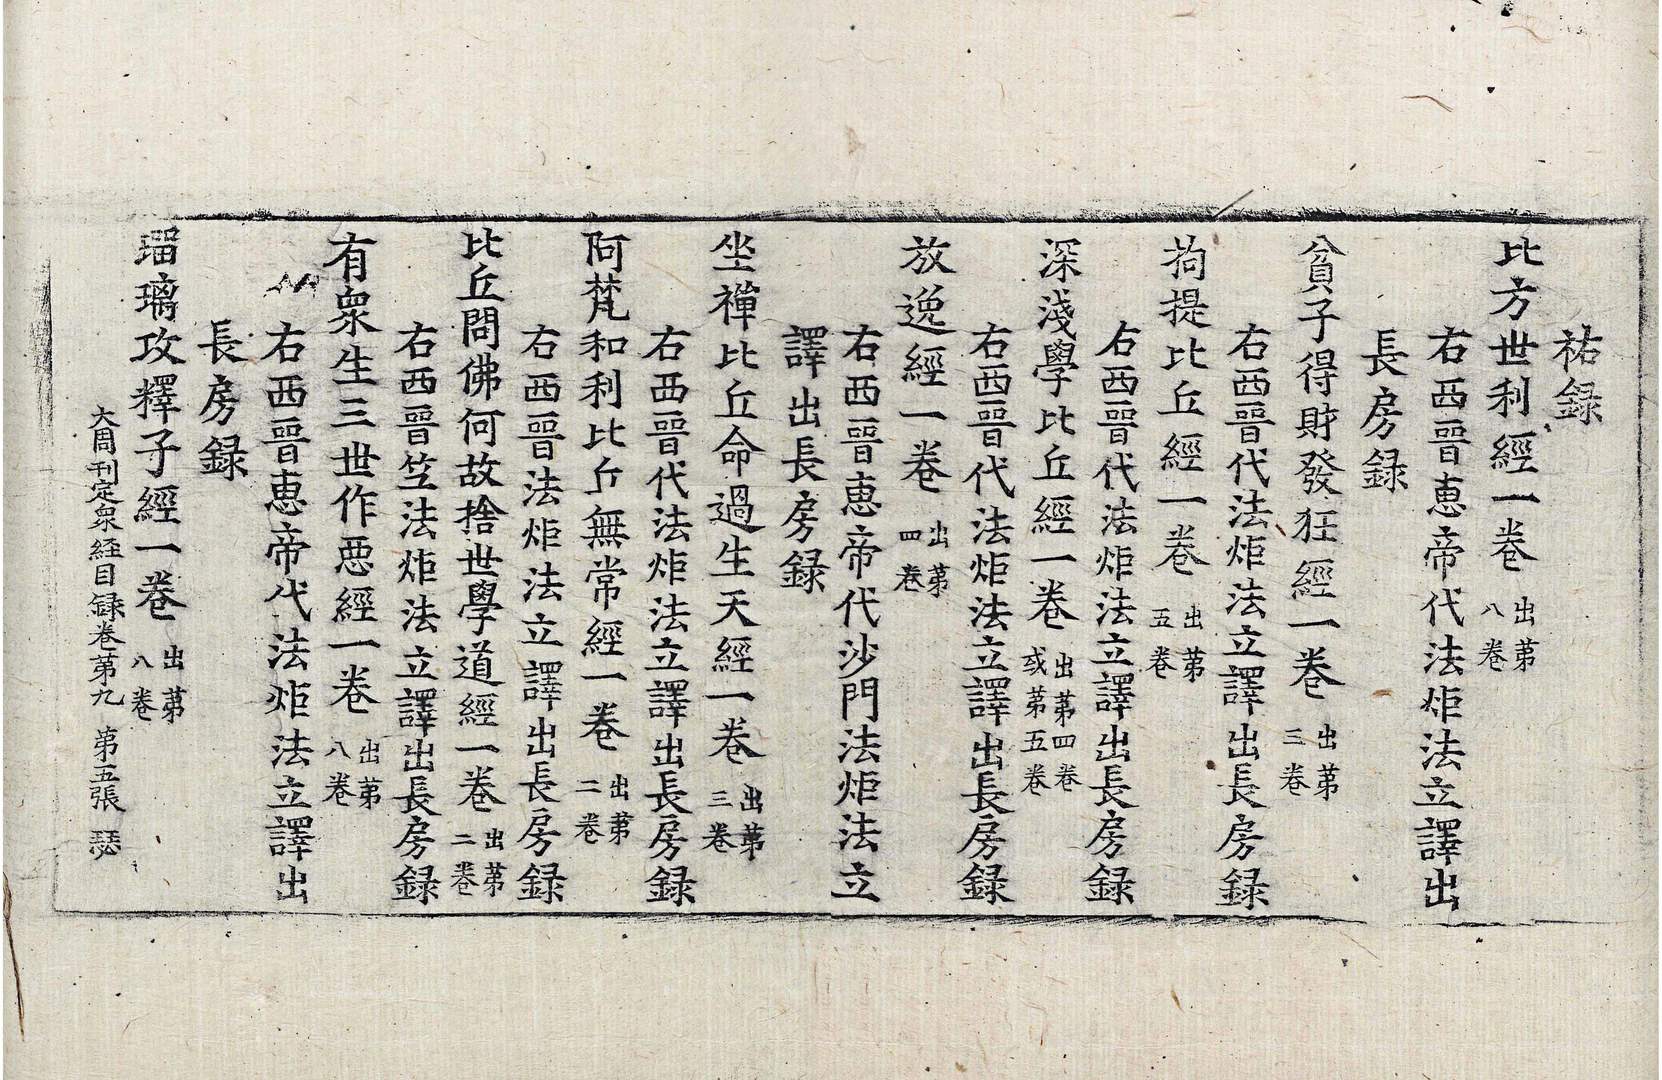 祐録
比方世利經一卷 出苐八卷
右西晉恵帝代法炬法立譯出
長房録
貧子得財發狂經一卷 出苐三卷
右西晉代法炬法立譯出長房録
拘提比丘經一卷 出苐五卷
右西晉代法炬法立譯出長房録
深淺學比丘經一卷 出苐四卷或苐五卷
右西晉代法炬法立譯出長房録
放逸經一卷 出苐四卷
右西晉恵帝代沙門法炬法立
譯出長房録
坐禪比丘命過生天經一卷 出苐三卷
右西晉代法炬法立譯出長房録
阿梵和利比丘無常經一卷 出苐二卷
右西晉法炬法立譯出長房録
比丘問佛何故捨世學道經一卷 出苐二卷
右西晉竺法炬法立譯出長房録
有衆生三世作惡經一卷 出苐八卷
右西晉恵帝代法炬法立譯出
長房録
瑠璃攻釋子經一卷 出苐八卷
大周刊定衆経目録卷苐九 第五張 瑟